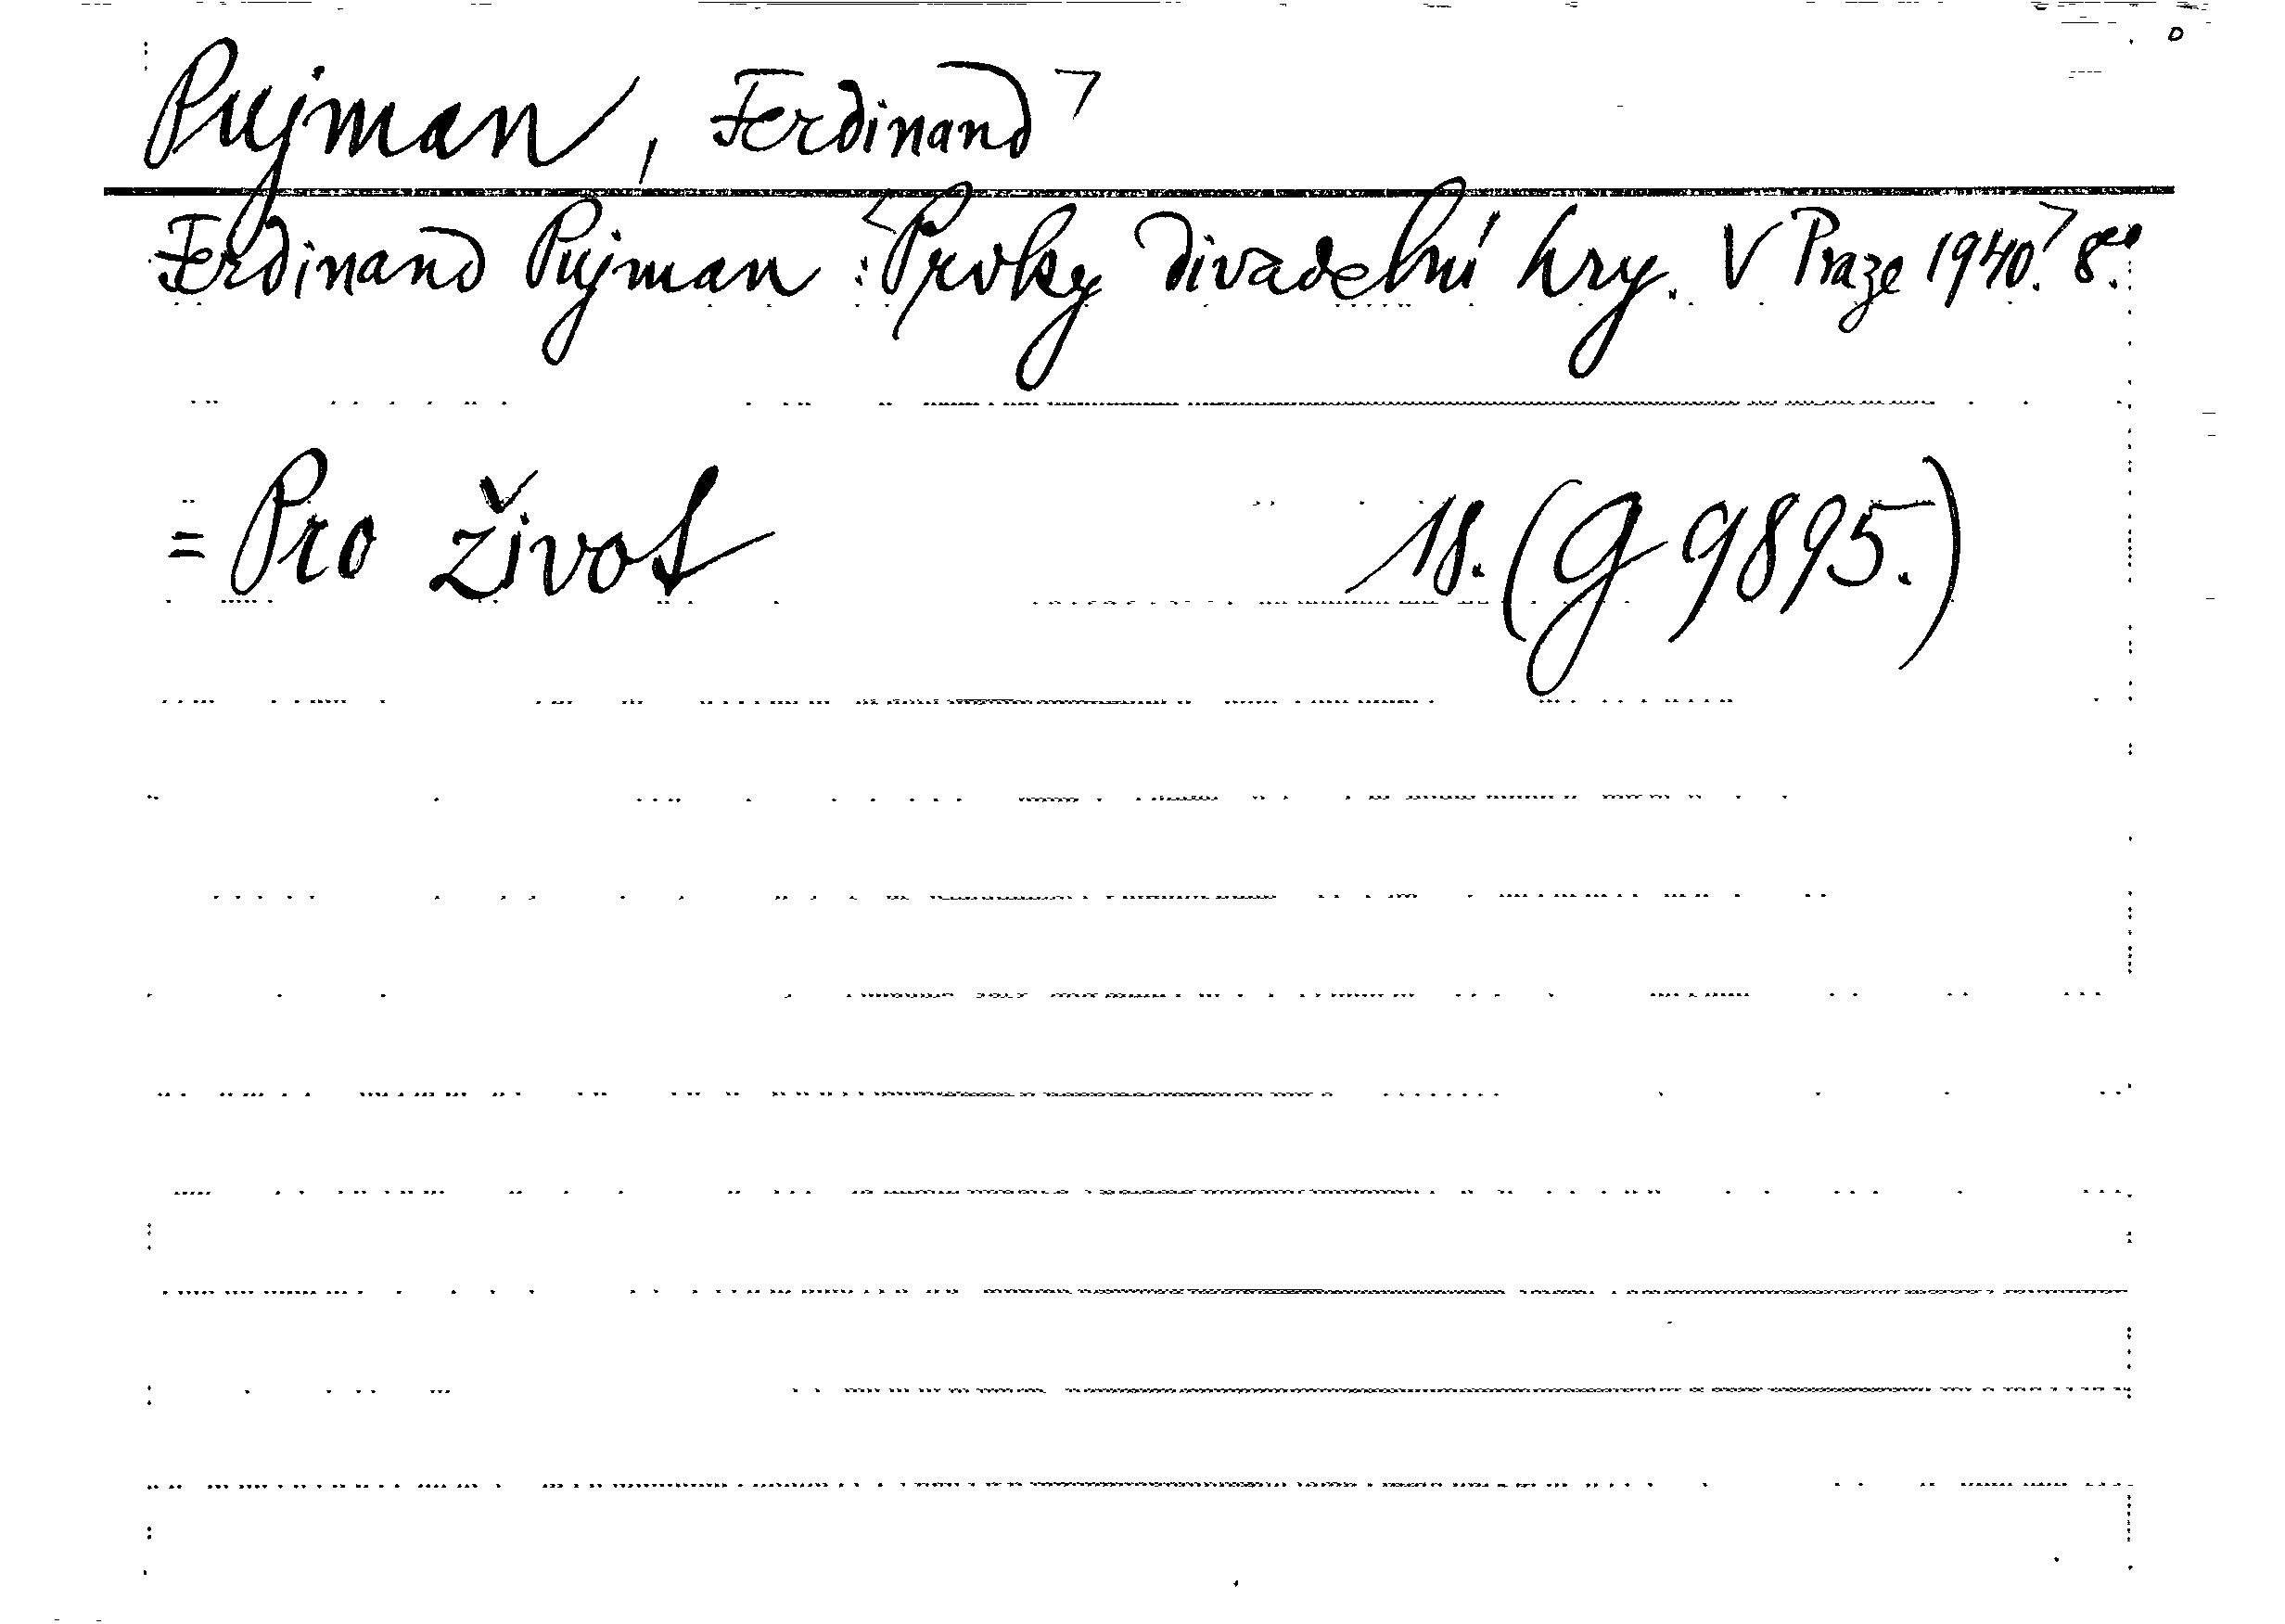 Pujman, Ferdinand
Ferdinand Pujman: Prvky divadelní hry. V Praze 1940. 8°.
= Pro život 18. (G 9895.)